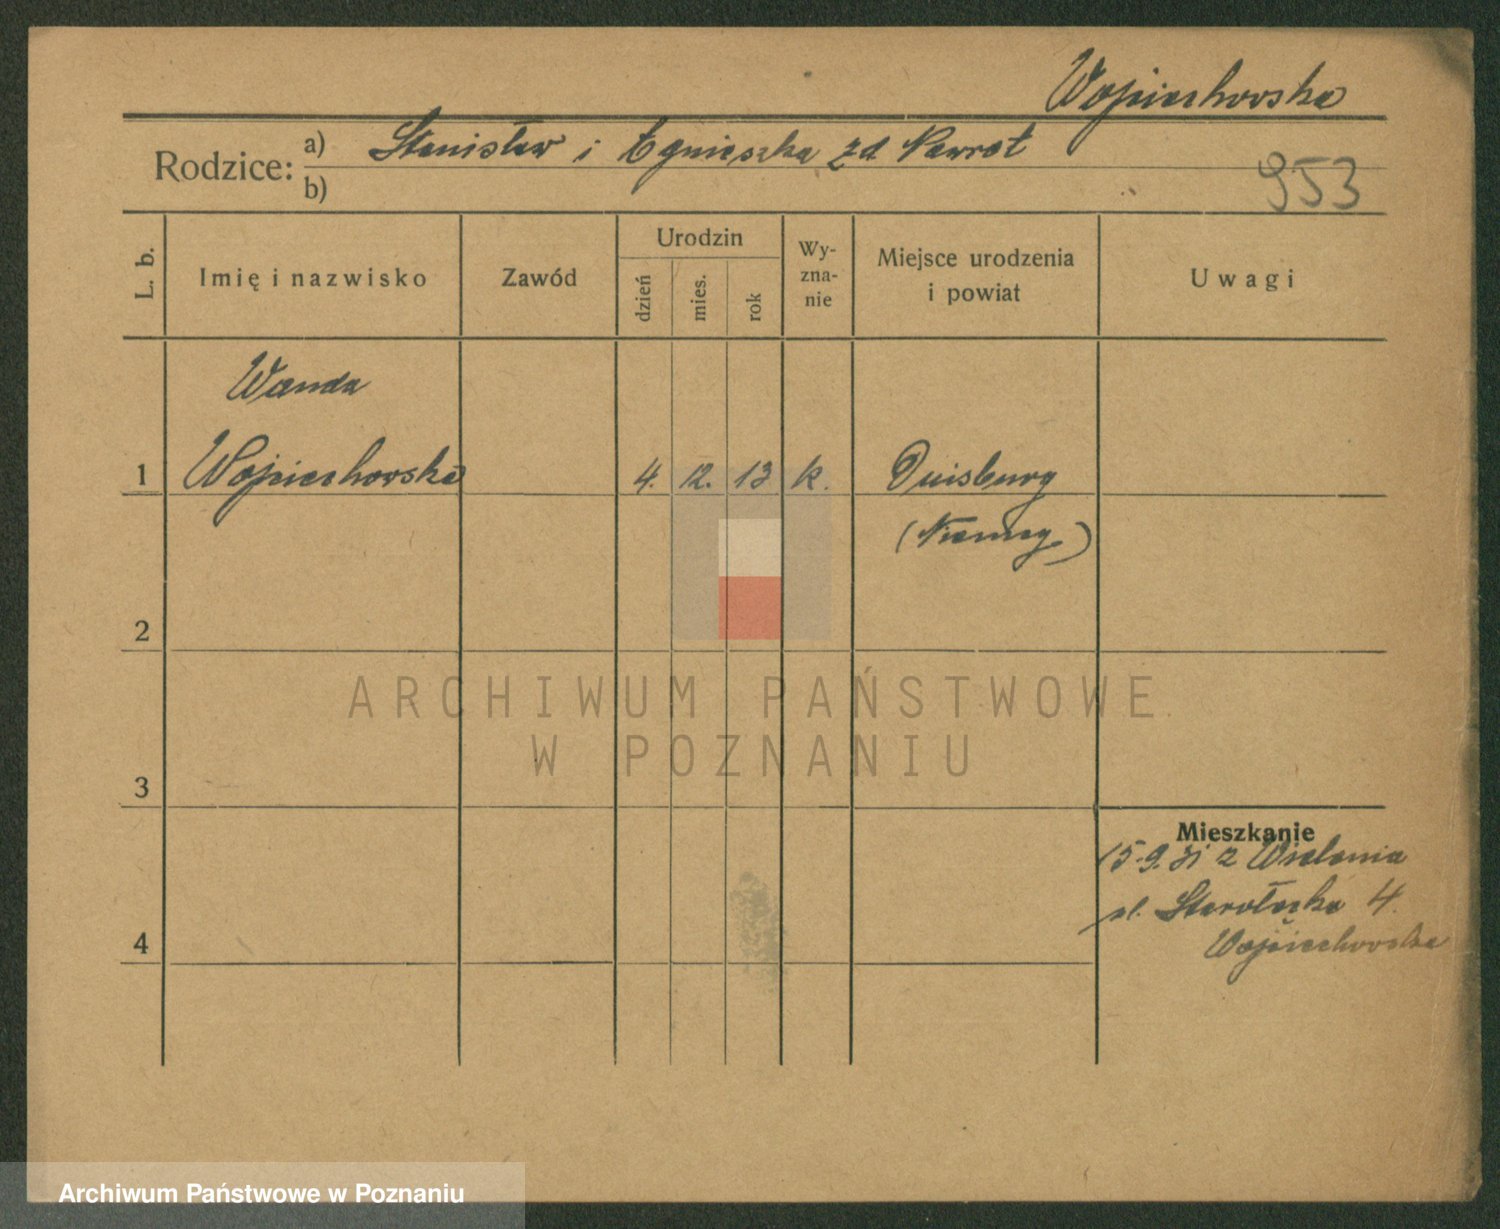 Wojciechowska
Rodzice: a) Stanisław i Agnieszka zd Nawrot
b)
953
L. b.
Imię i nazwisko
Zawód
Urodzin
dzień
mies.
rok
Wy-
zna-
nie
Miejsce urodzenia
i powiat
Uwagi
Wanda
1 Wojciechowska 4. 12. 13 k. Duisburg
(Niemcy)
2
3
4
Mieszkanie
15.9.31 z Wielenia
ul. Starołęcka 4.
Wojciechowska
ARCHIWUM PAŃSTWOWE
W POZNANIU
Archiwum Państwowe w Poznaniu